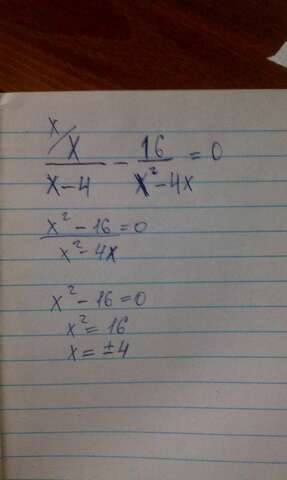 x/ x/(x-4) - 16/(x²-4x) = 0
(x²-16)/(x²-4x) = 0
x²-16=0
x²=16
x=±4